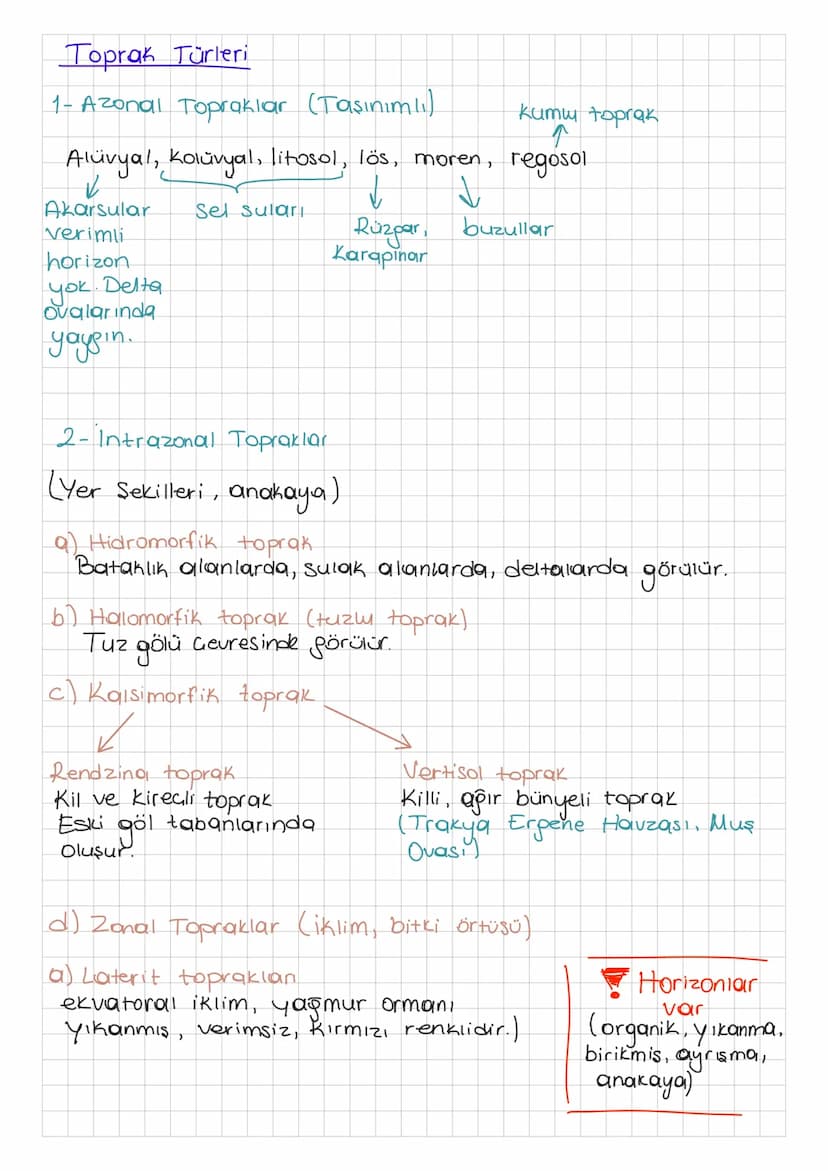 Toprak Türleri
1- Azonal Topraklar (Taşınımlı)
kumlu toprak
Alüvyal, kolüvyal, litosol, lös, moren, regosol
Akarsular
verimli
horizon
yok. Delta
ovalarında
yaygın.
Sel suları
Rüzgar,
Karapınar
buzullar
2- İntrazonal Topraklar
(Yer Sekilleri, anakaya)
a) Hidromorfik toprak
Bataklık alanlarda, sulak alanlarda, deltalarda görülür.
b) Halomorfik toprak (tuzlu toprak)
Tuz gölü çevresinde görülür.
c) Kalsimorfik toprak
Rendzina toprak
Kil ve kireçli toprak
Eski göl tabanlarında
oluşur.
Vertisol toprak
Killi, ağır bünyeli toprak
(Trakya Ergene Havzası, Muş
Ovası)
d) Zonal Topraklar (iklim, bitki örtüsü)
a) Laterit toprakları
ekvatoral iklim, yağmur ormanı
yıkanmış, verimsiz, kırmızı renklidir.)
Horizonlar
var
(organik, yıkanma,
birikmis, ayrışma,
anakaya)